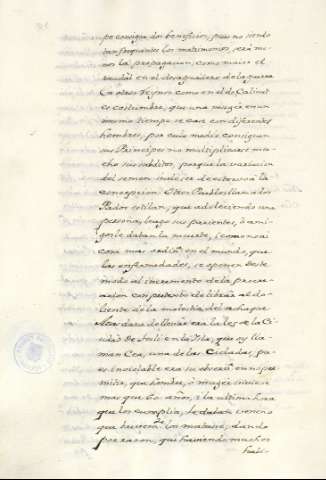 se consiga dos beneficios, pues no siendo
tan frequentes los matrimonios, será me-
nos la propagacion, como maior el
caudal en el desaguadero de la guerra
En otros Reynos como en el de Calicut
es costumbre, que una muger en un
mismo tiempo se case con diferentes
hombres, por cuio medio consiguen
sus Principes no multiplicar mu-
cho sus subditos, porque la variacion
del semen suele ser de estorvo a la
concepcion. Otros Pueblos llamados
Padeos estilan, que adoleciendo una
persona, luego sus parientes, ó ami-
gos le daban la muerte, i como no ai
cosa mas en el mundo, que
las enfermedades, se oponen de este
modo al incremento de la procre-
acion con pretexto de librar al do-
liente de la molestia del achaque
dura de llevar era la lei de la Ciu-
dad de en la Isla, que oy lla-
man Cea, una de las Cicladas, pa-
es inviolable era su observ.ª no per-
mitir, que hombre, ó muger viviese
mas que 60 años, i la ultima hora
que los cumplia, se le daba veneno
que huviere de los matase; dando
por razon, que haviendo muchos